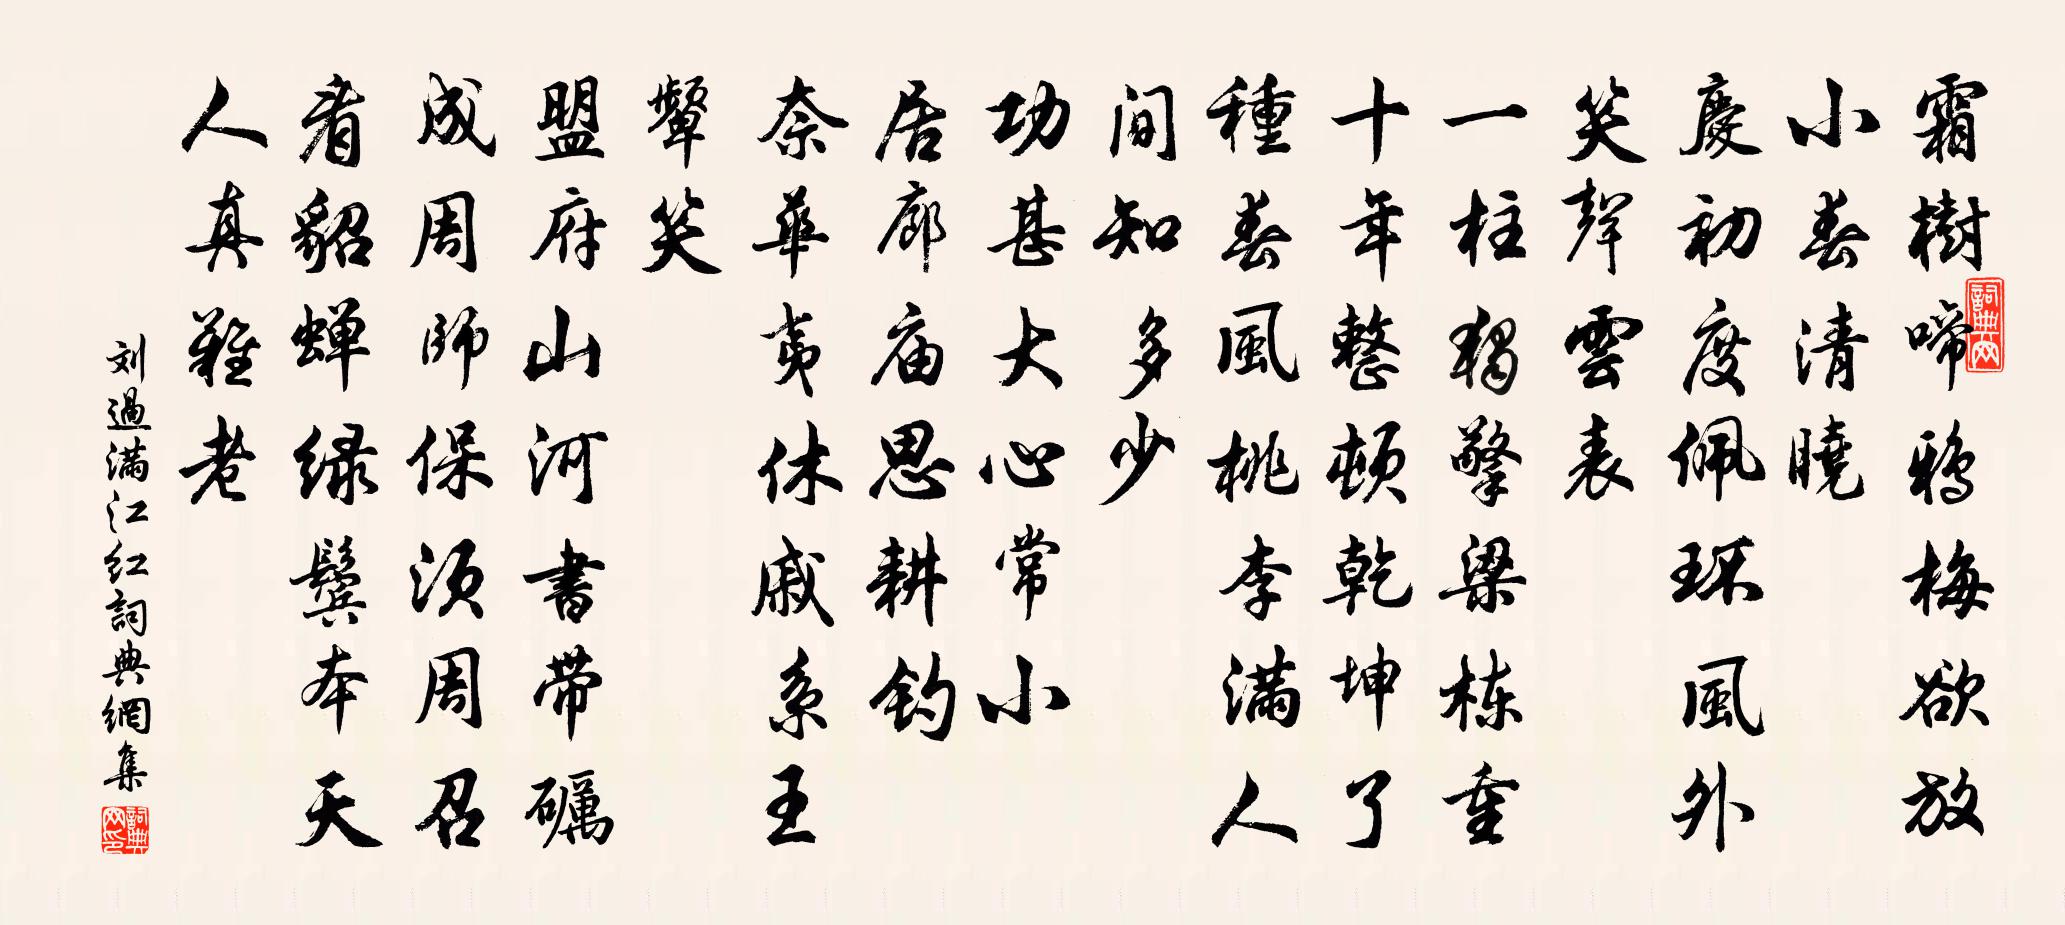 霜樹啼鴉梅欲放
小春清曉
慶初度佩環風外
笑聲雲表
一柱獨擎梁棟重
十年整頓乾坤了
種春風桃李滿人
間知多少
功甚大心常小
居廊庙思耕釣
奈華夷休戚系王
顰笑
盟府山河書帶礪
成周師保須周召
看貂蝉緑鬢本天
人真難老
刘過满江红詞典網集
詞典网
詞典网印